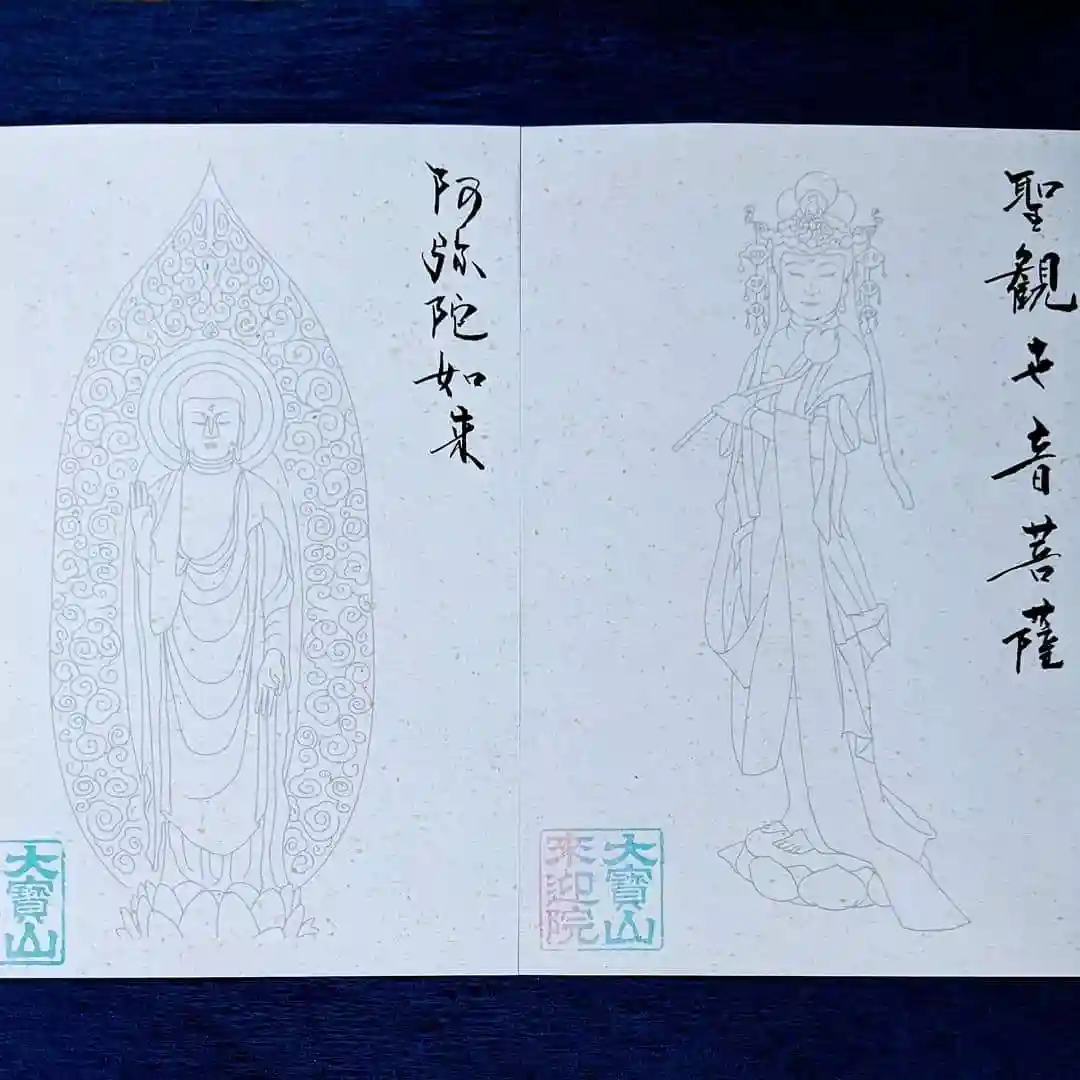 聖観世音菩薩
阿弥陀如来
大寳山
来迎院
大寳山